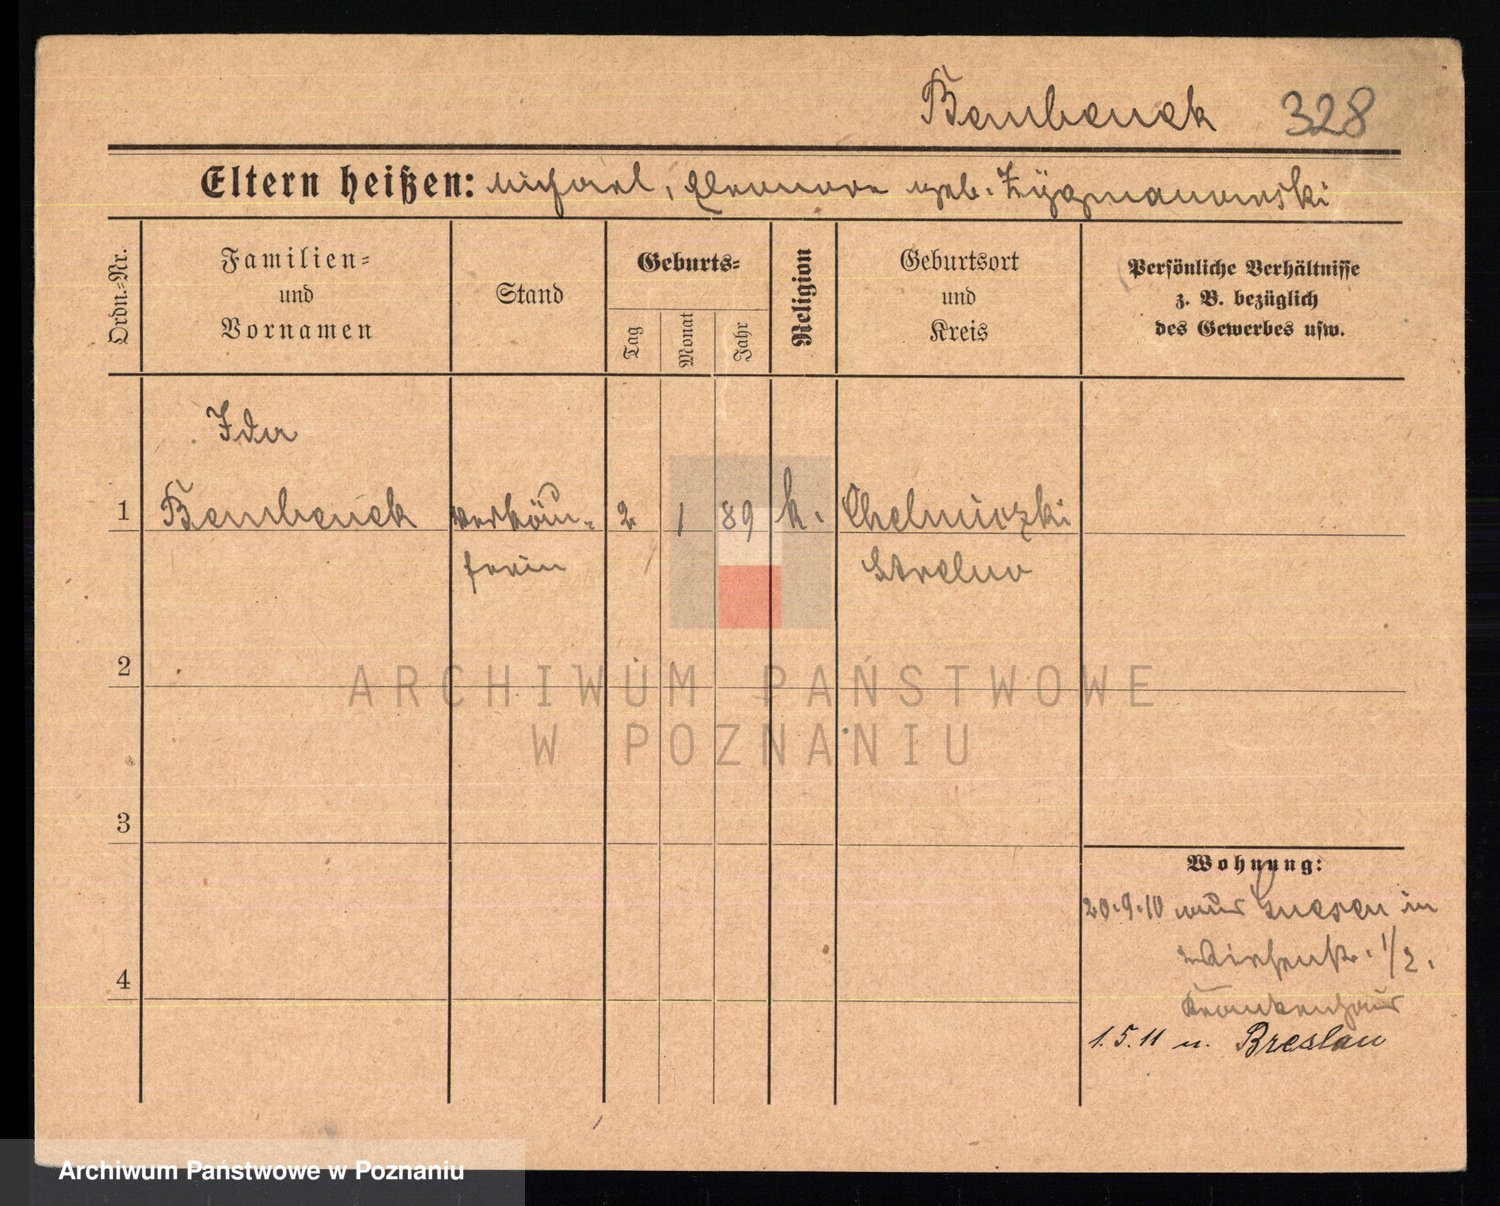 Bembenek 328
Eltern heißen: Michael, Eleonore geb. Zygmanowski
Ordn.-Nr.
Familien-
und
Vornamen
Stand
Geburts-
Tag
Monat
Jahr
Religion
Geburtsort
und
Kreis
Persönliche Verhältnisse
z. B. bezüglich
des Gewerbes usw.
Ida
1 Bembenek Verkäu- 2 1 89 k. Chelmiczki
ferin Strelno
2
3
4
Wohnung:
20.9.10 aus Gnesen in
1/2.
Krankenhaus
1.5.11 n. Breslau
ARCHIWUM PAŃSTWOWE
W POZNANIU
Archiwum Państwowe w Poznaniu